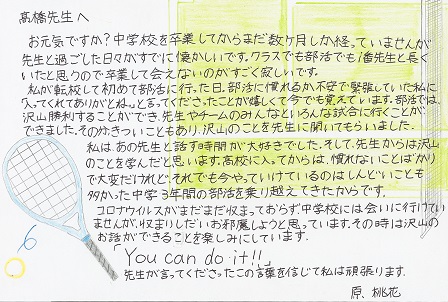 髙橋先生へ
お元気ですか?中学校を卒業してからまだ数ヶ月しか経っていませんが
先生と過ごした日々がすでに懐かしいです。クラスでも部活でも1番先生と長く
いたと思うので卒業して会えないのがすごく寂しいです。
私が転校して初めて部活に行った日。部活に慣れるか不安で緊張していた私に
「入ってくれてありがとね。」と言ってくださったことが嬉しくて今でも覚えています。部活では、
沢山勝利することができ、先生やチームのみんなといろんな試合に行くことが
できました。その分きついこともあり、沢山のことを先生に聞いてもらいました。
私はあの先生と話す時間が大好きでした。そして、先生からは沢山
のことを学んだと思います。高校に入ってからは、慣れないことばかり
で大変だけれど、それでも今やっていけているのはしんどいことも
多かった中学3年間の部活を乗り越えてきたからです。
コロナウイルスがまだまだ収まっておらず中学校には会いに行けてい
ませんが、収まりしだいお邪魔しようと思っています。その時は沢山の
お話ができることを楽しみにしています。
「You can do it!!」
先生が言ってくださったこの言葉を信じて私は頑張ります。
原 桃花
6